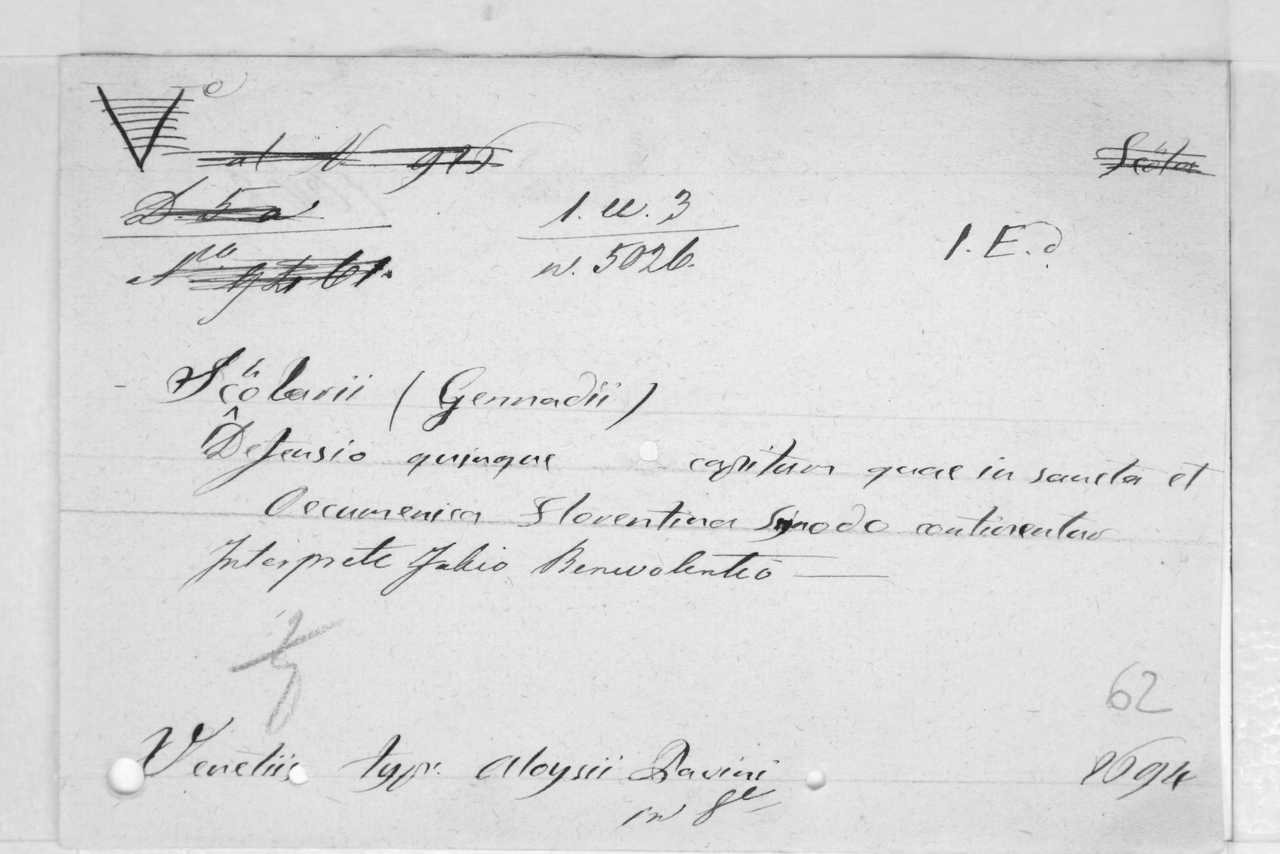 Scola
D. 5 a
1. ee. 3
n. 5026.
1. E. d
Scholarii (Gennadii)
Defensio quinque capitum quae in sancta et
Oecumenica Florentina Synodo continentur
Interprete Fabio Benevolentio —
62
Venetiis typ. Aloysii Pavini 1694
in 8e